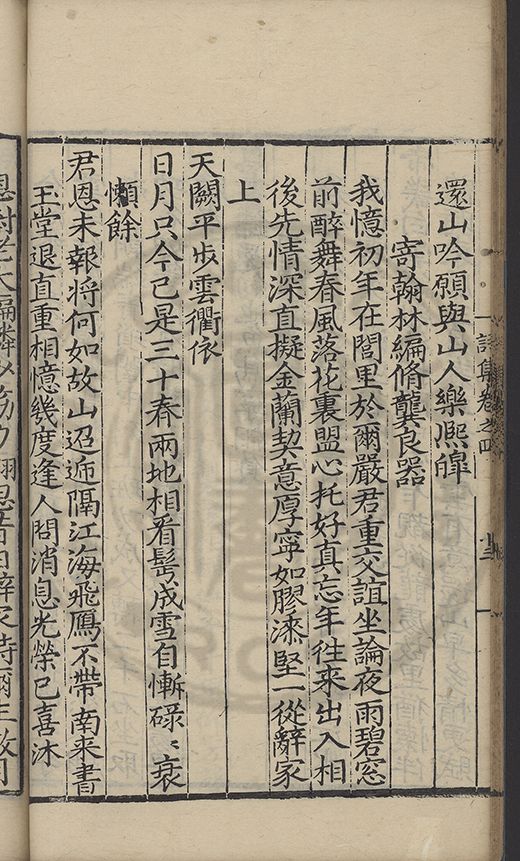 還山吟願與山人樂熈皞
寄翰林編脩龔良器
我憶初年在閭里於爾嚴君重交誼坐論夜雨碧窓
前醉舞春風落花裏盟心托好真忘年往來出入相
後先情深直擬金蘭契意厚寧如膠漆堅一從辭家
上
天闕平歩雲衢依
日月只今已是三十春兩地相看髩成雪自慚碌〻衰
懶餘
君恩未報將何如故山迢逓隔江海飛鴈不帶南來書
玉堂退直重相憶幾度逢人問消息光榮已喜沐
詩集卷之四